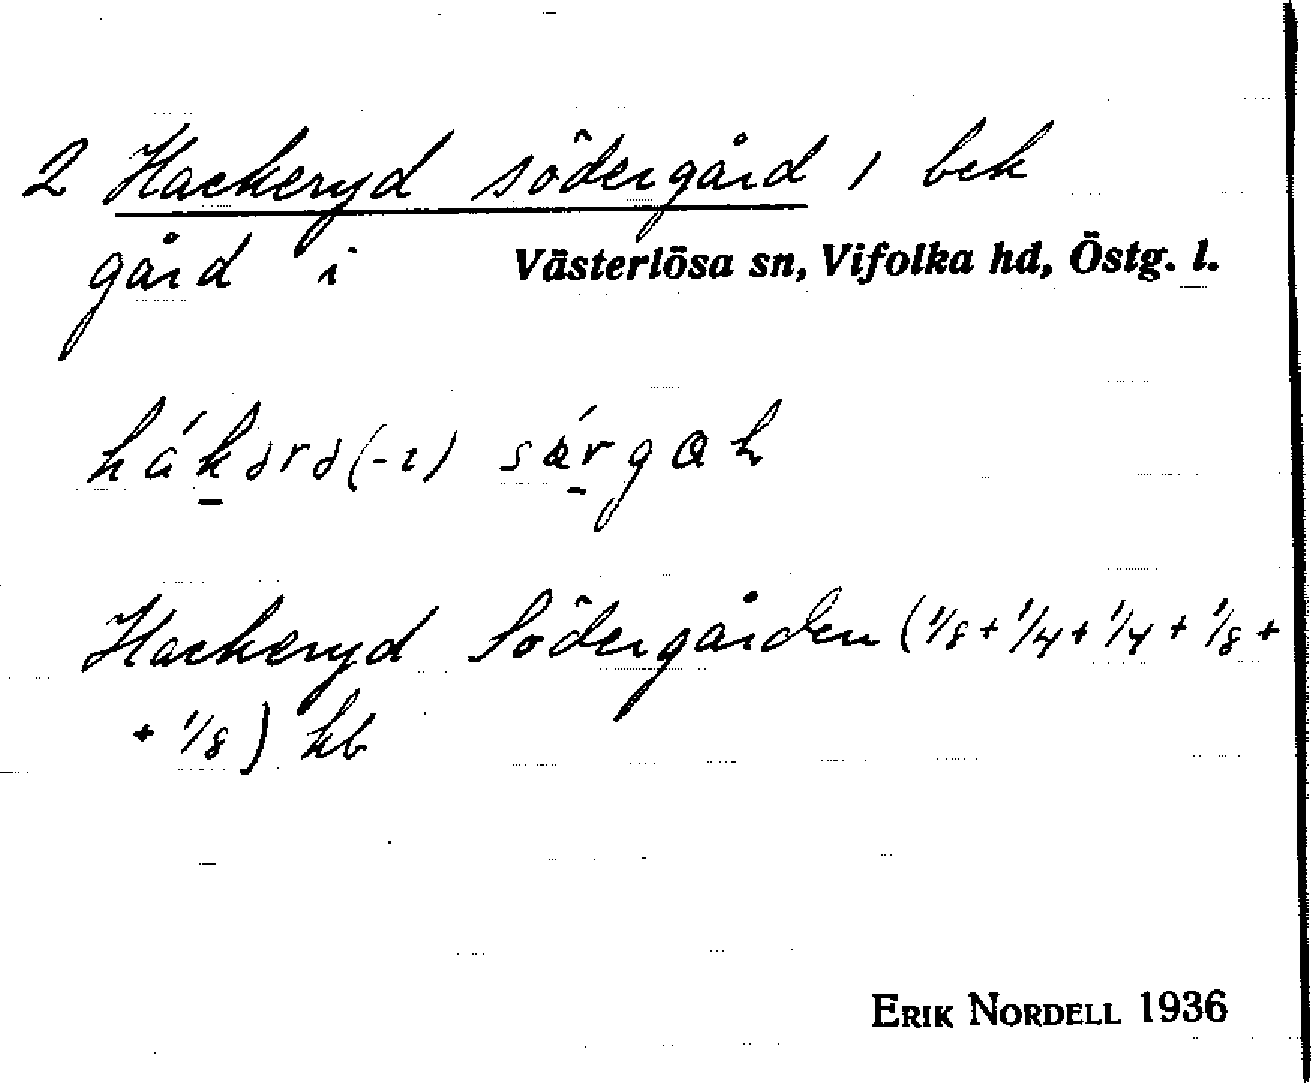 2 Hackeryd södergård, bek
gård i Västerlösa sn, Vifolka hd, Östg. l.
hák̲ərə(-ɩ)
Hackeryd Södergården (1/8 + 1/4 + 1/4 + 1/8 +
+ 1/8) hb
ERIK NORDELL 1936